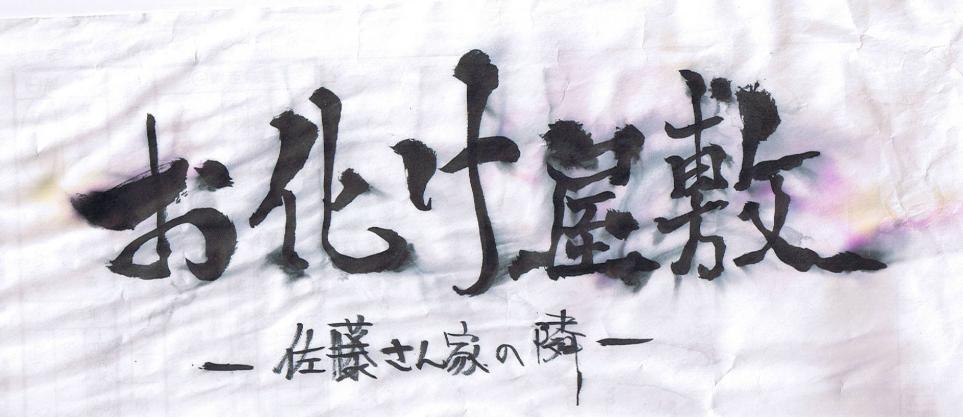 お化け屋敷
ー佐藤さん家の隣ー